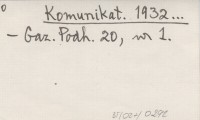 Komunikat. 1932...
– Gaz. Podh. 20, nr 1.